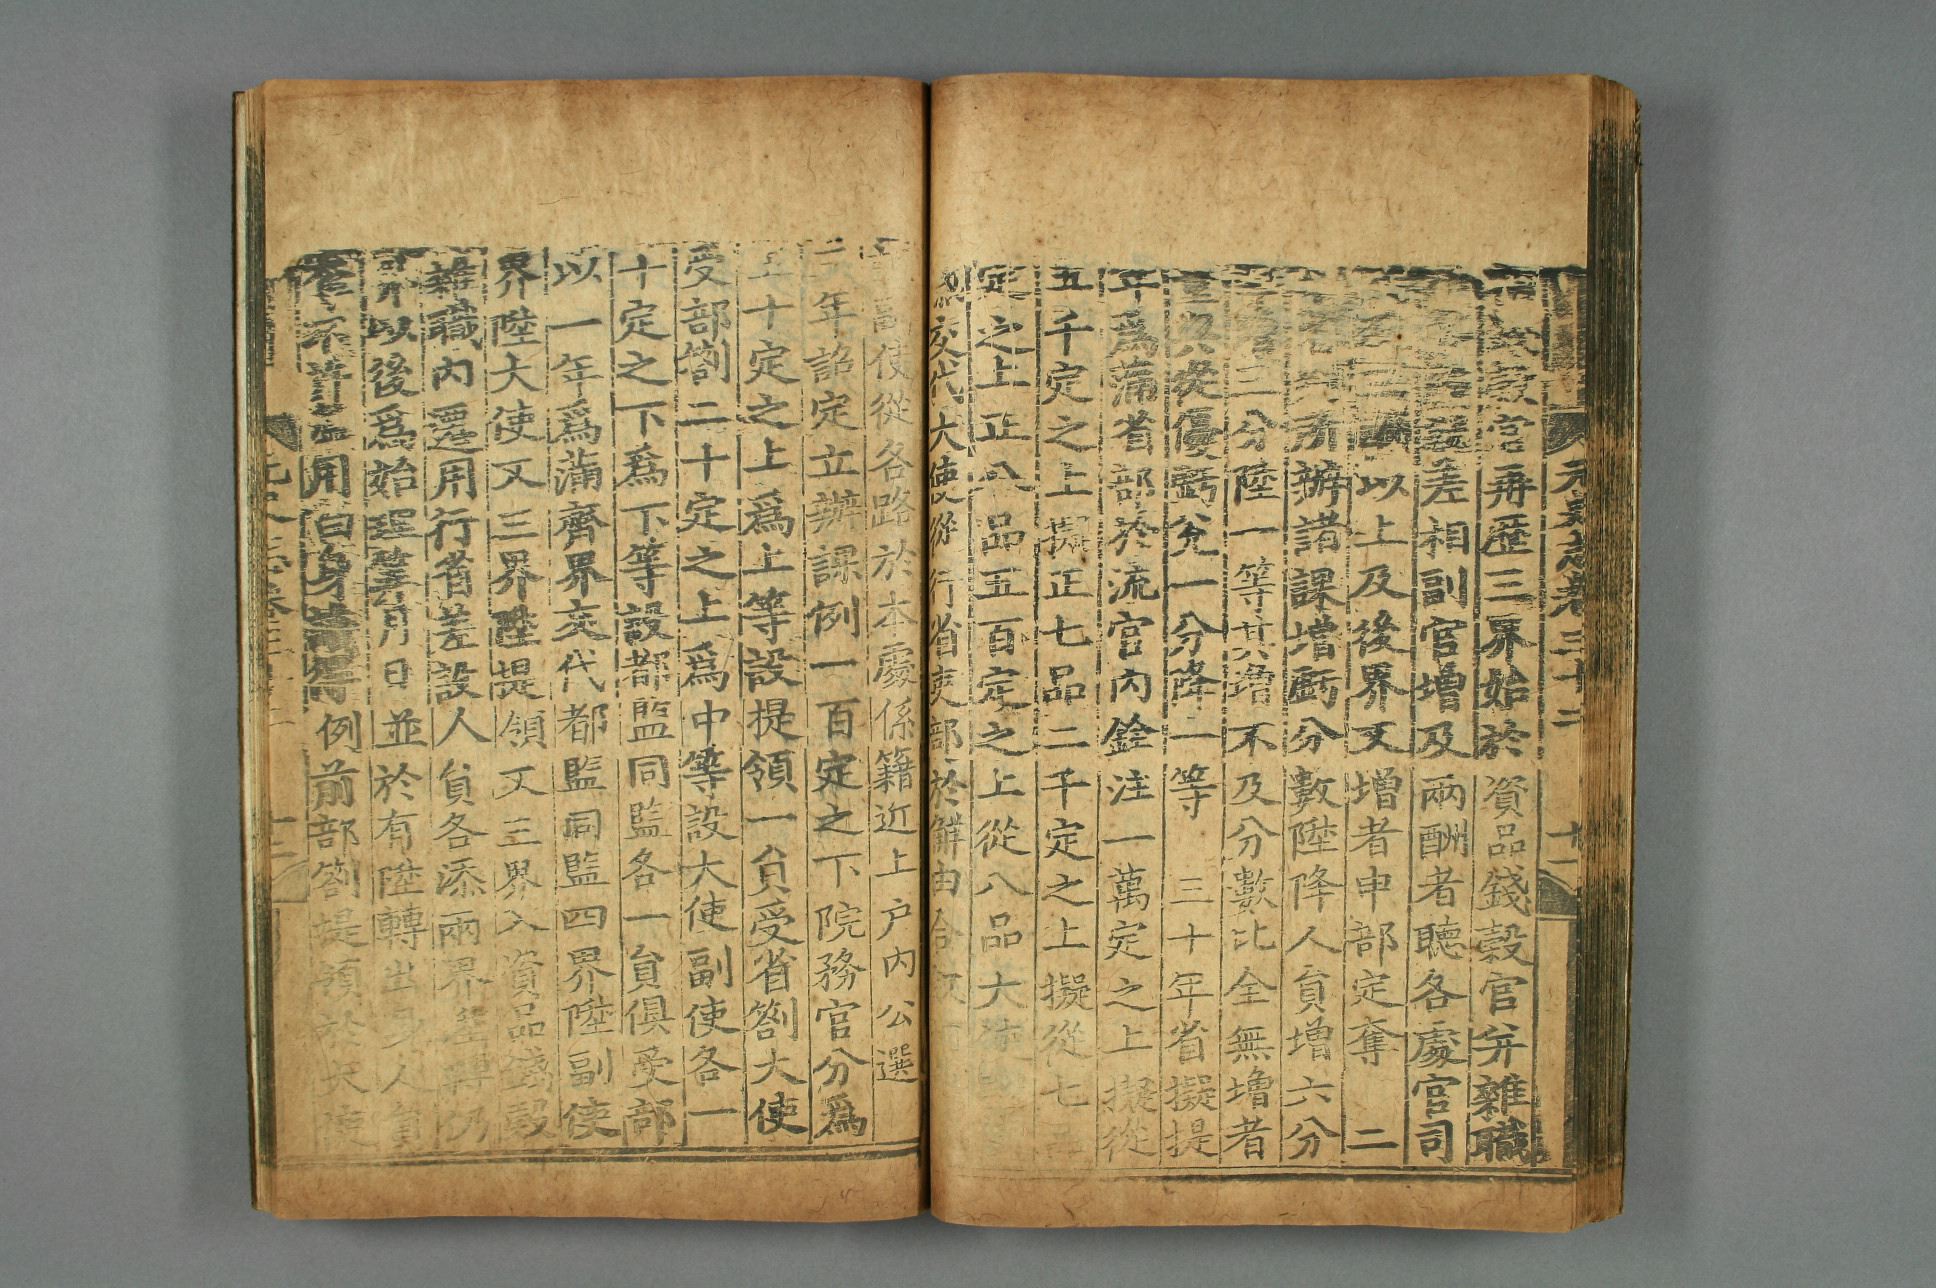 元史志卷三十二 十一
錢穀官再歷三界始於資品錢穀官并雜職
差相副官增及兩酬者聽各處官司
以上及後界又增者申部定奪 二
所辦諸課增虧分數陞降人員增六分
三分陞一等其增不及分數比全無增者
從優虧兌一分降一等 三十年省擬提
年爲滿省部於流官內銓注一萬定之上擬從
五千定之上擬正七品二千定之上擬從七品
定之上正八品五百定之上從八品大
交代大使從行省吏部於解由合
副使從各路於本處係籍近上户內公選
年詔定立辦課例一百定之下院務官分爲
五十定之上爲上等設提領一員受省劄大使
受部劄二十定之上爲中等設大使副使各一
十定之下爲下等設都監同監各一員俱受部
以一年爲滿齊界交代都監同監四界陞副使
界陞大使又三界陞提領又三界入資品錢穀
雜職內遷用行省差設人員各添兩界陞轉仍
以後爲始理筭月日並於有陞轉出身人員
不許用白身 例前部劄提領於大使